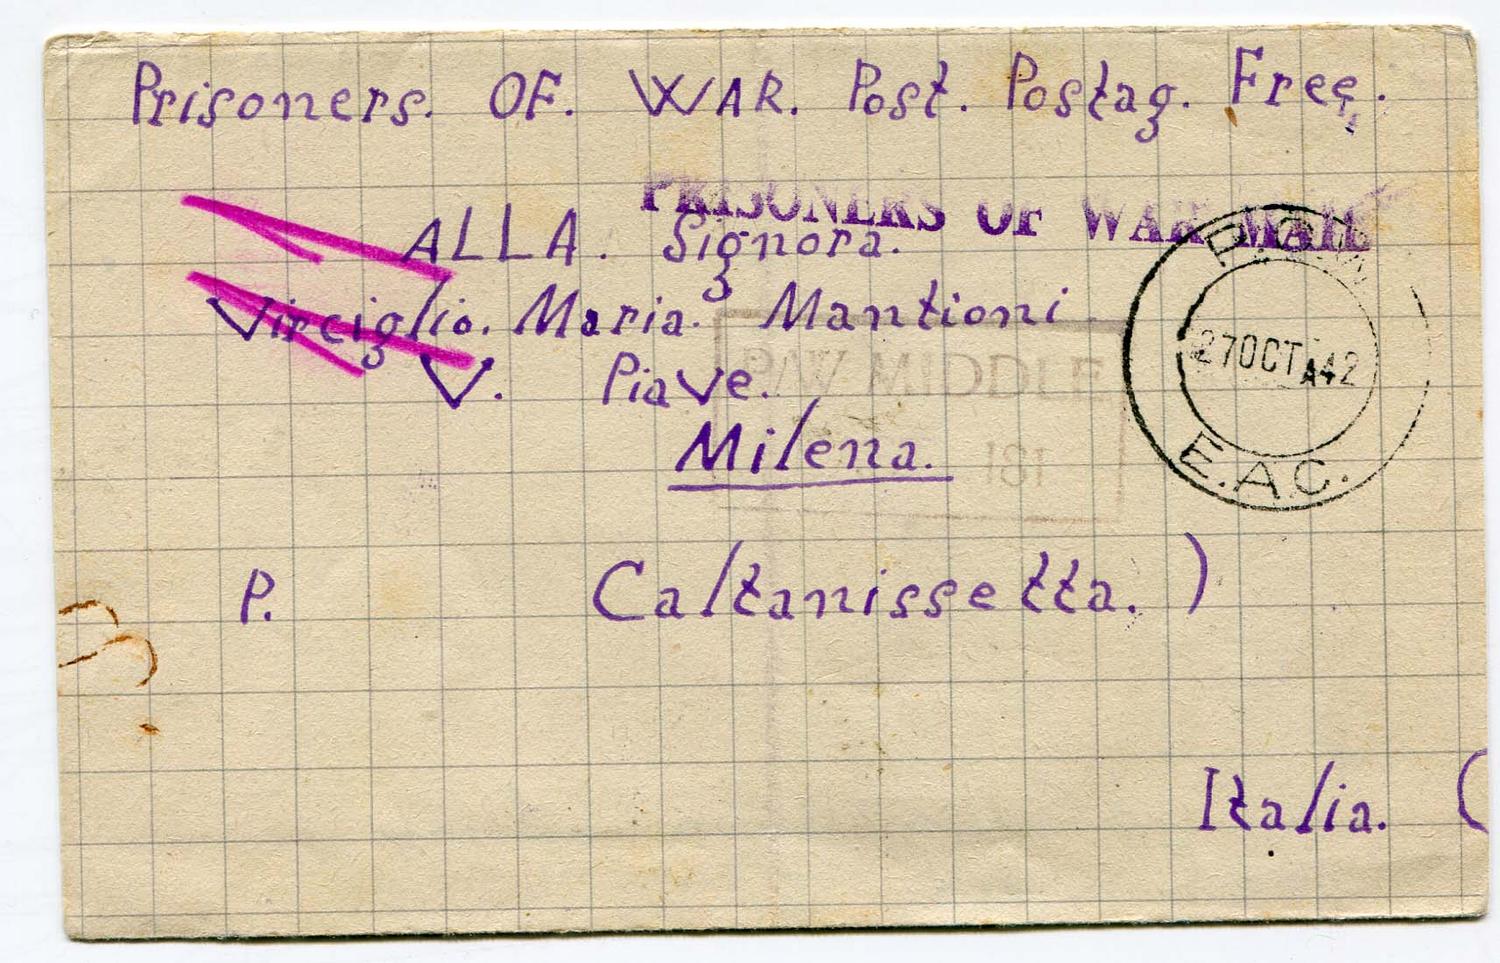 Prisoners. OF. WAR. Post. Postag. Free.
PRISONERS OF WAR MAIL
ALLA. Signora.
Virciglio. Maria. Mantioni
V. Piave.
Milena.
27 OCT A 42
E.A.C.
P. Caltanissetta. )
Italia. (